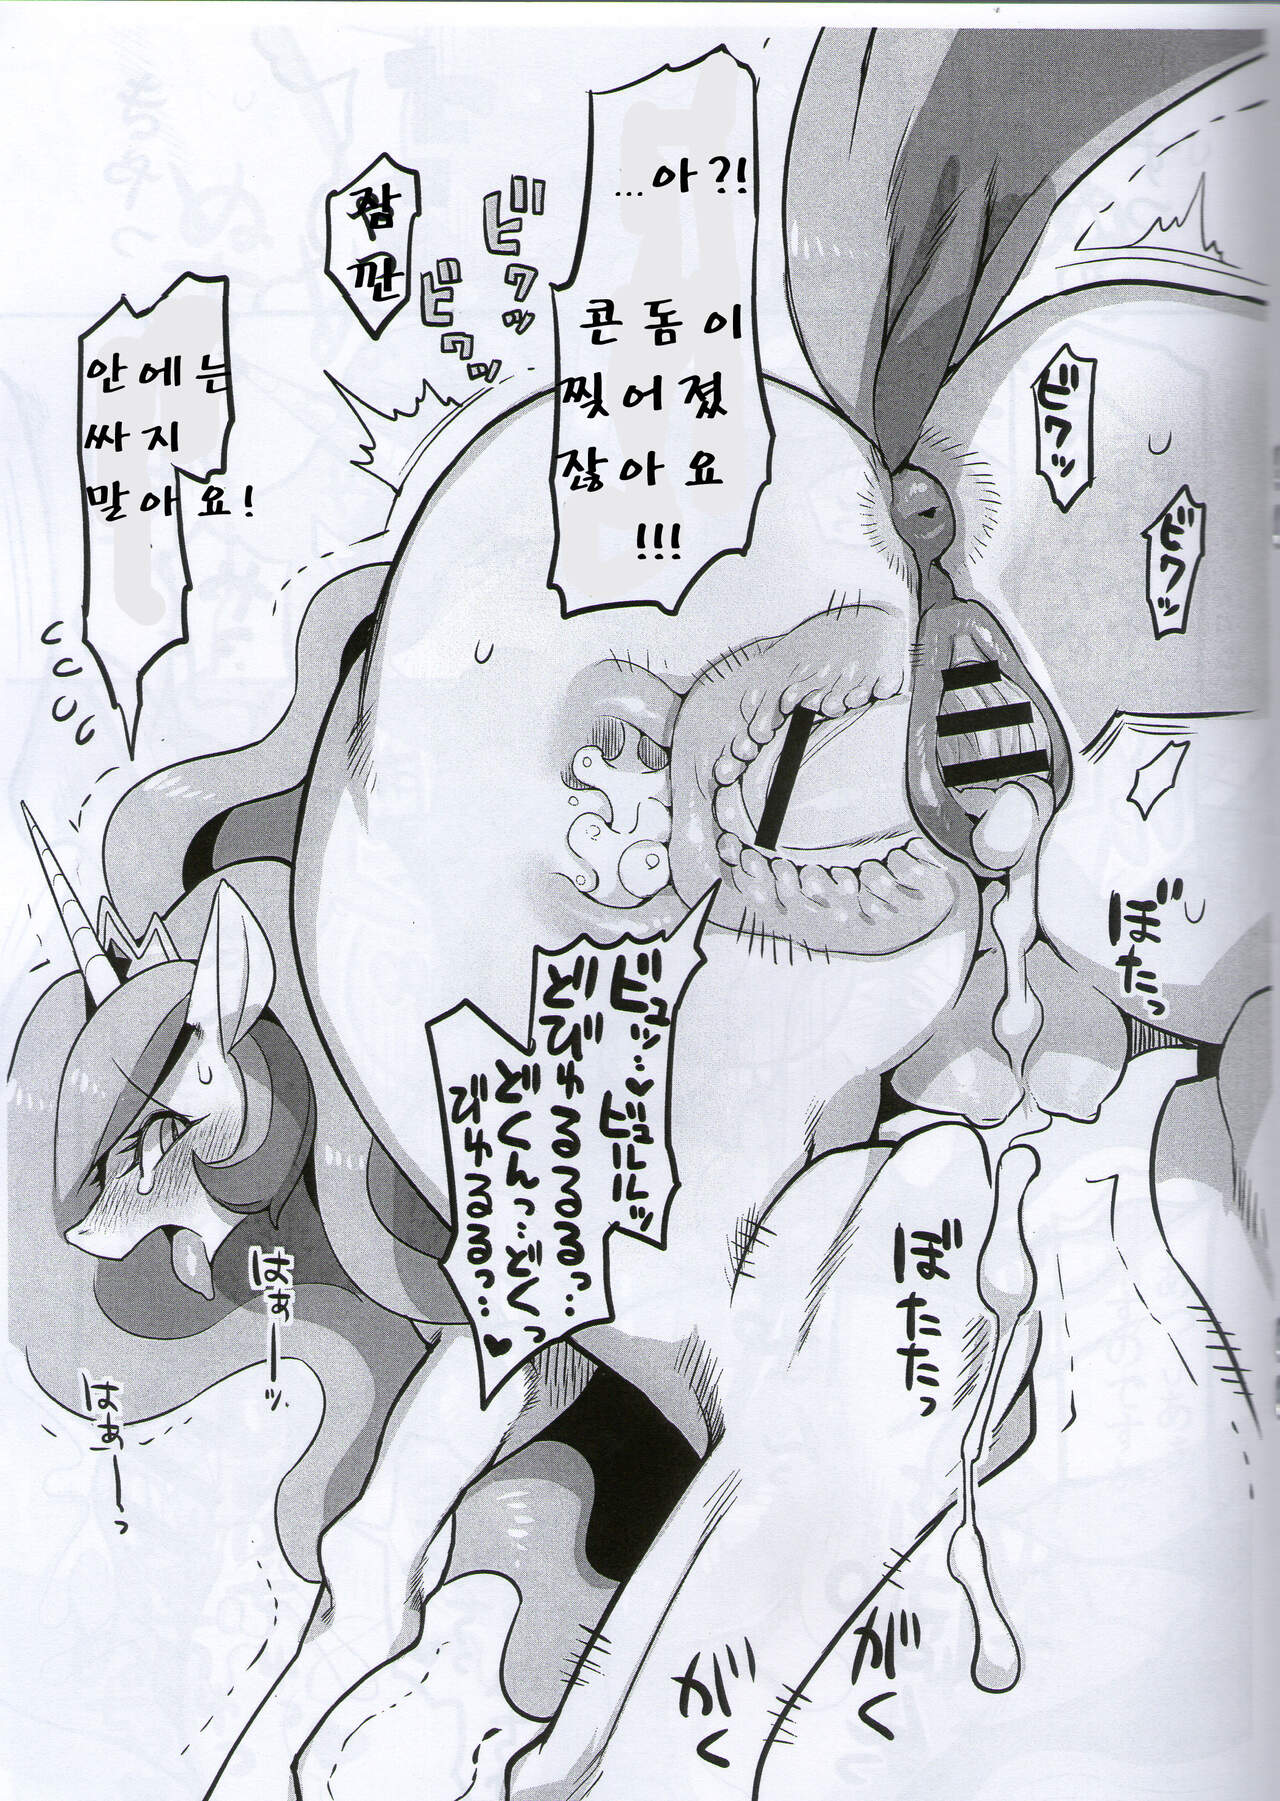 …아?!
콘돔이
찢어졌
잖아요
!!!
잠
깐
안에는
싸지
말아요!
ビクッ
ビクッ
ビクッ
ビクッ
ビュッ…♥ビュルルルッ
どびゅるるるるっ…
どくんっ…どくっ
びゅるるるっ…♥
ぼたっ
ぼたたっ
はぁーッ
はぁーっ
ガク
ガク